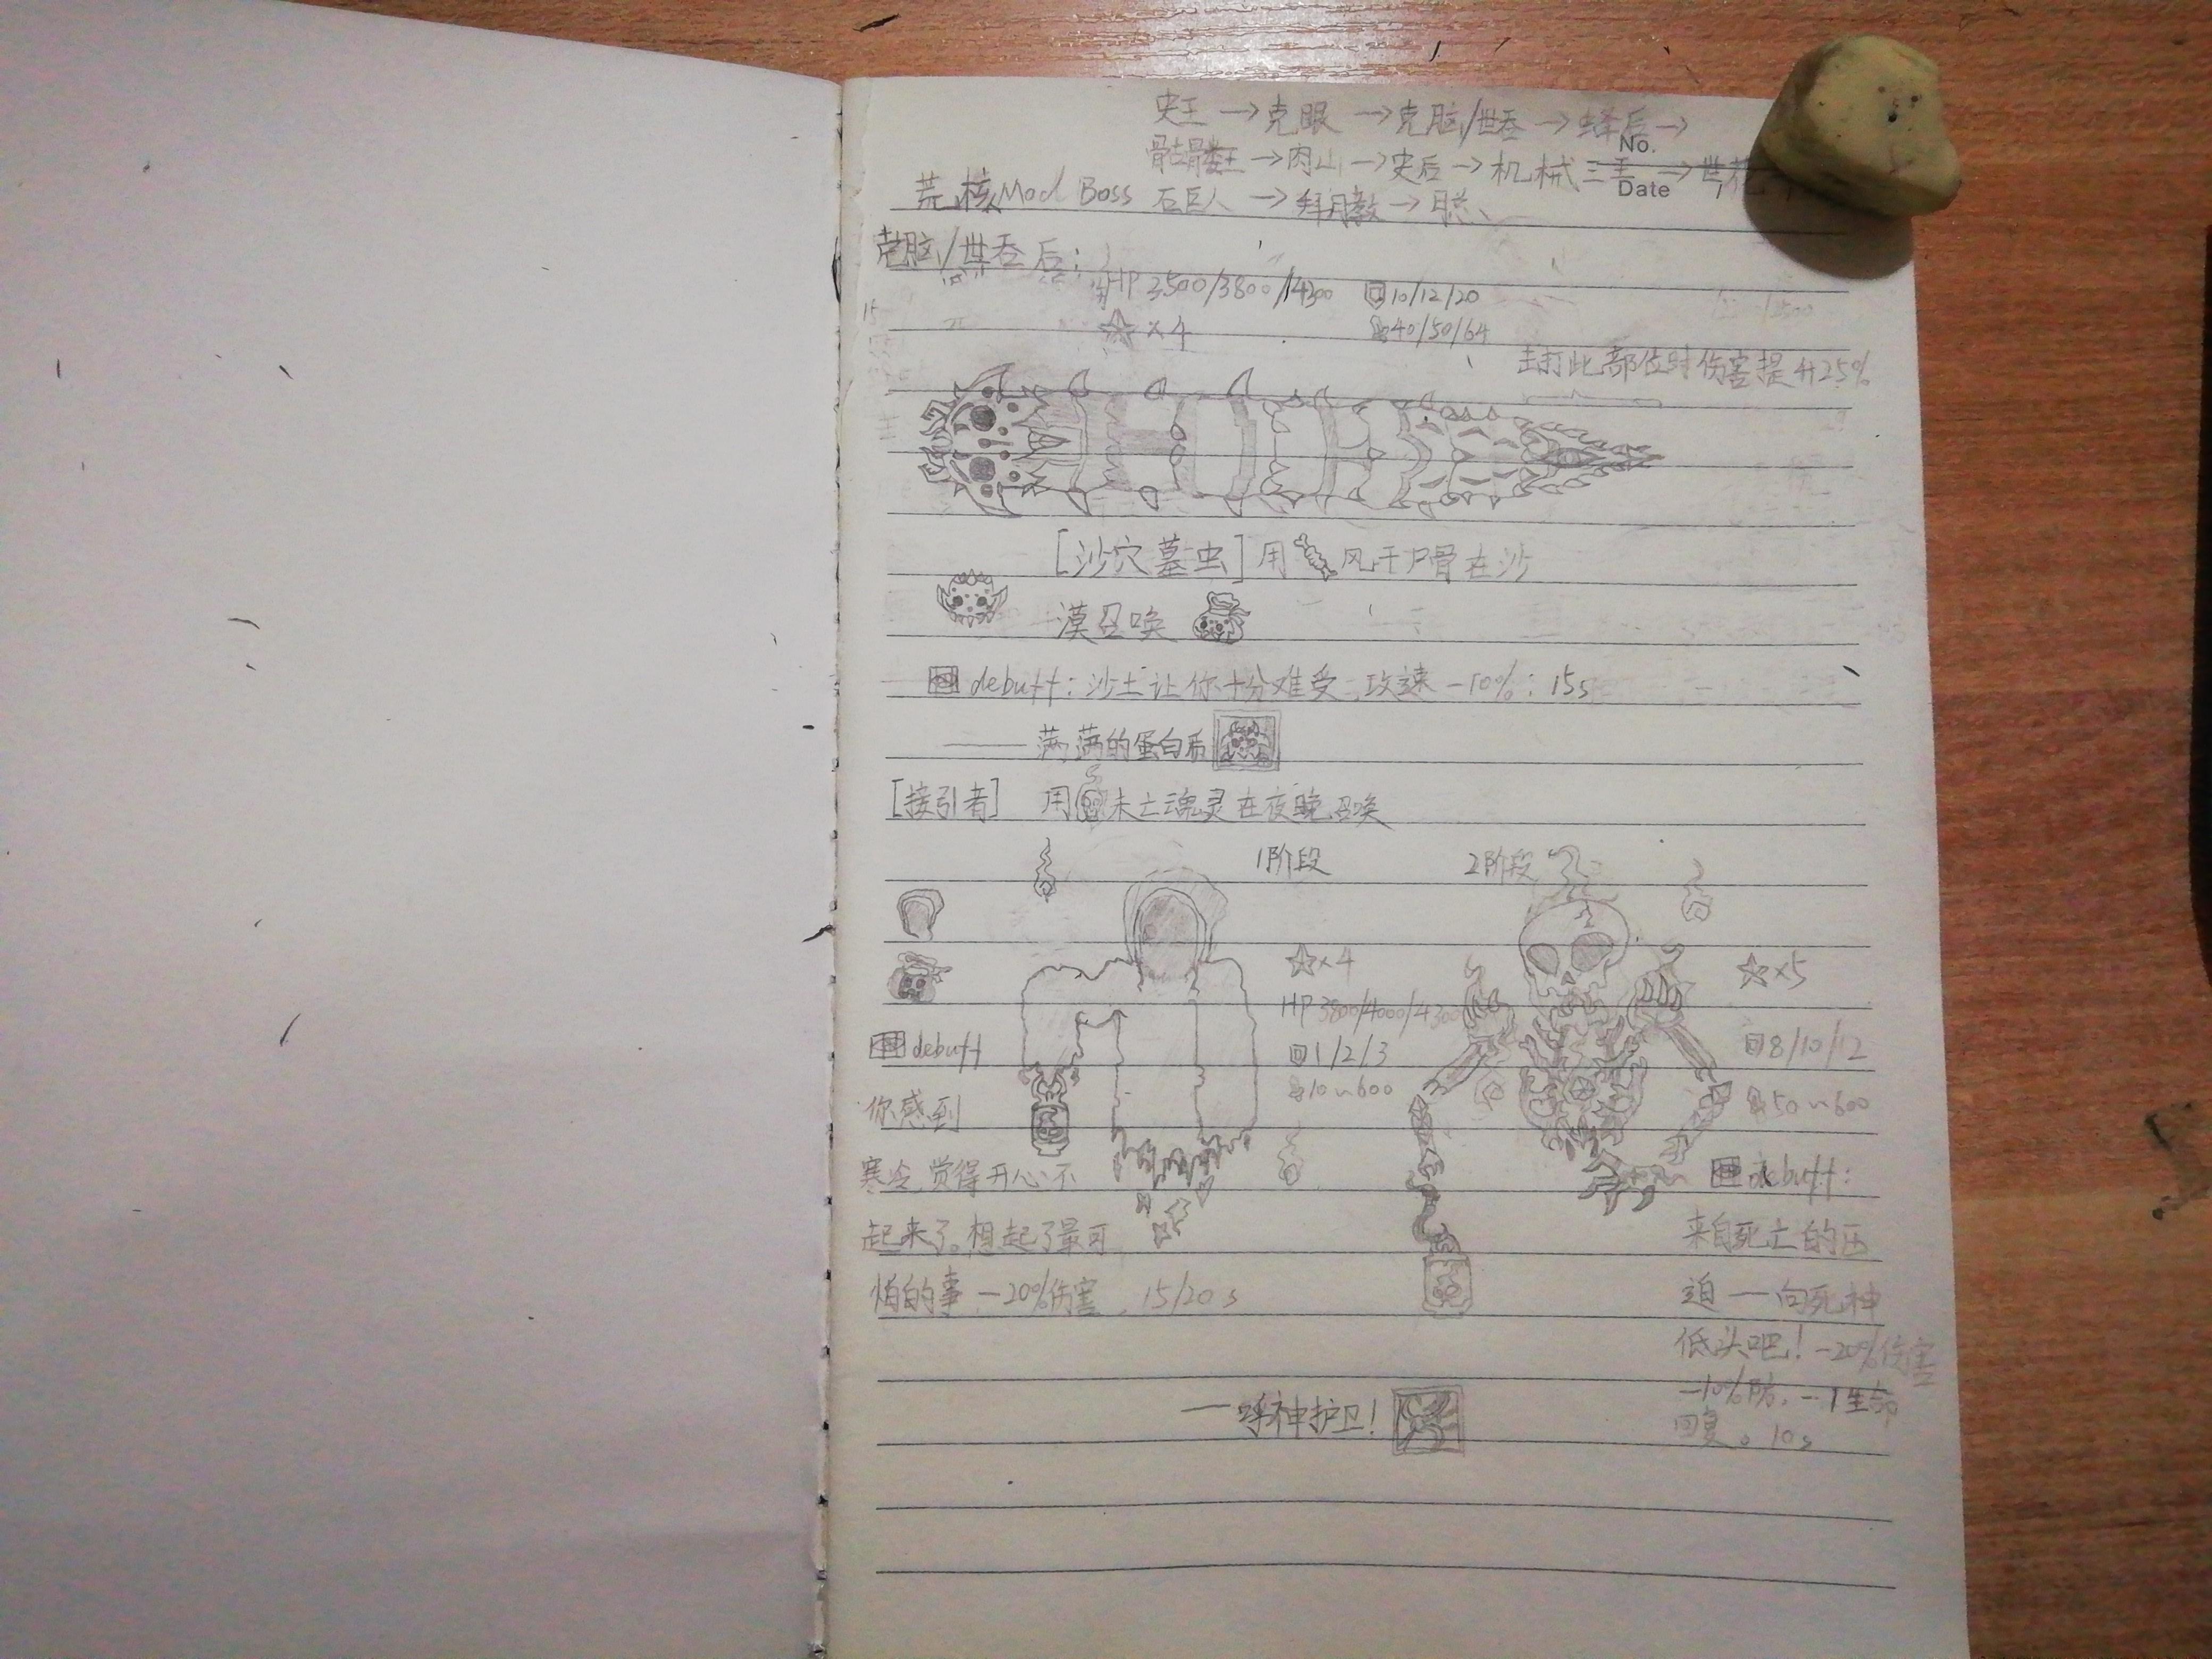 史王→克眼→克脑/世吞→蜂后→
No.
骷髅王→肉山→史后→机械三王→世花
Date
荒核Mod Boss 石巨人→拜月教→月总、
克脑/世吞后：
HP 3500/3800/4300 10/12/20
×4 40/50/64
击打此部位时伤害提升25%
[沙穴墓虫]用风干尸骨在沙
漠召唤
debuff：沙土让你十分难受，攻速-10%：15s
——满满的蛋白质
[接引者] 用未亡魂灵在夜晚召唤
1阶段 2阶段
×4 ×5
HP 3800/4000/4300
debuff 1/2/3 8/10/12
你感到 10~600 50~600
寒冷，觉得开心不 debuff：
起来了。想起了最可 来自死亡的压
怕的事 -20%伤害，15/20s 迫—向死神
低头吧！-20%伤害
-10%防，-1生命
—呼神护卫！ 回复。10s